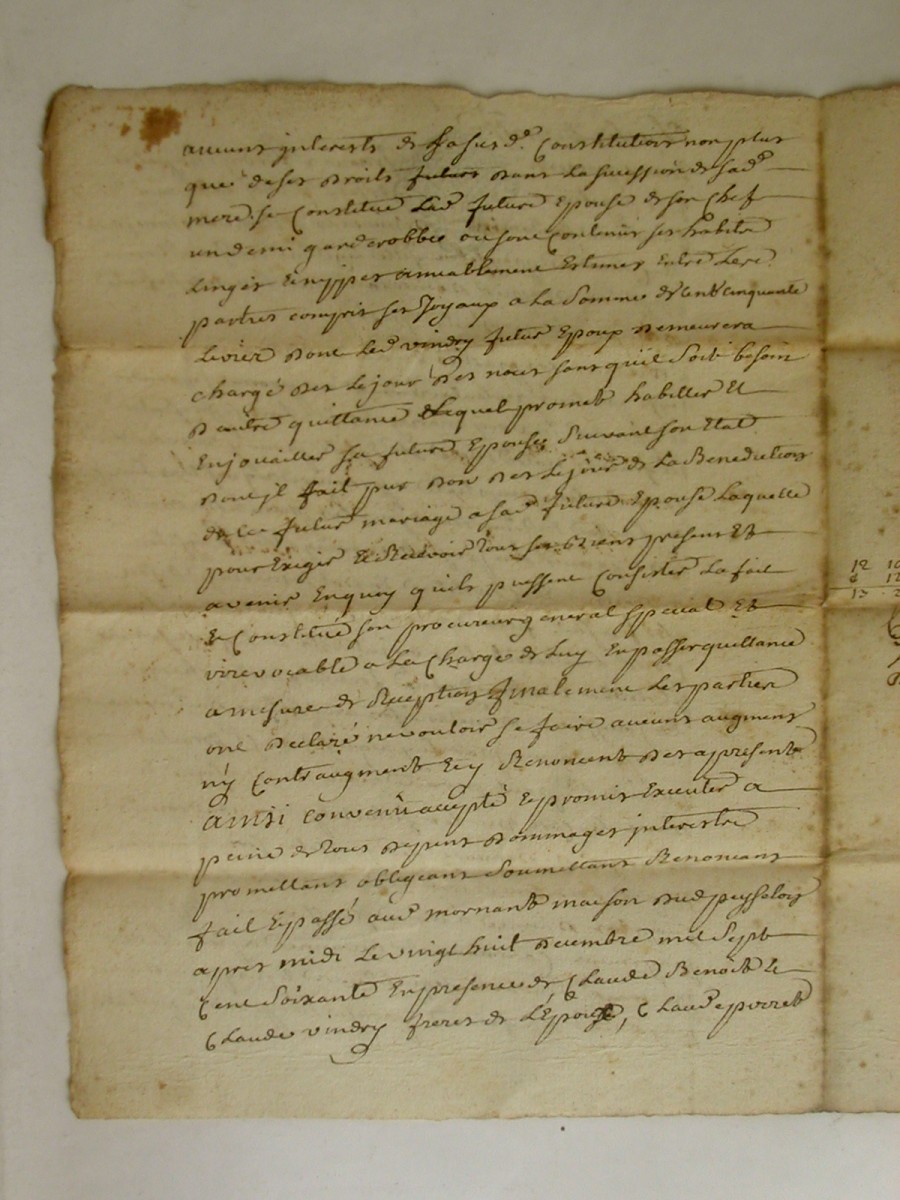 aucuns jnterests de sasusd.e Constitution non plus
que deses droits futurs dans la succession de sad.e
mere, se Constitue lad.e future Epouse de son Chef
un demi garderobbe ou sont Contenus ses habits
Linges Et nippes amiablement Estimés Entre Les
parties compris ses Joyaux a la Somme de Cent cinquante
Livres dont led. vindry futur Epoux demeurera
chargé des le jour des nous sans quil soit besoin
dautre quittance Lequel promet habiller Et
Enjouailler sa future Epouse Suivant son Etat
dont jl fait pur don des le jour de La Benediction
de ce futur mariage a sad. future Epouse Laquelle
pour Exiger Et Recevoir tous ses biens presents Et
avenir En quoy quils puissent Consister La fait
Et Constitué son procureur general special Et
irrevocable a la Charge de Luy En passer quittance
a mesure de Reception, finalement Les parties
ont declaré ne vouloir se faire aucuns augment
ny Contraugment Et y Renoncent des apresent
ainsi convenu accepté Et promis Executer a
peine de tous depens dommages jnterests
promettant obligeant Soumettant Renoncant
fait Et passé aud. mornant maison dud. peysselon
apres midi Le vingt huit decembre mil Sept
Cent Soixante En presence de Claude Benoît Et
Claude vindry freres de L'Epoux, Claude porret
12 10
13